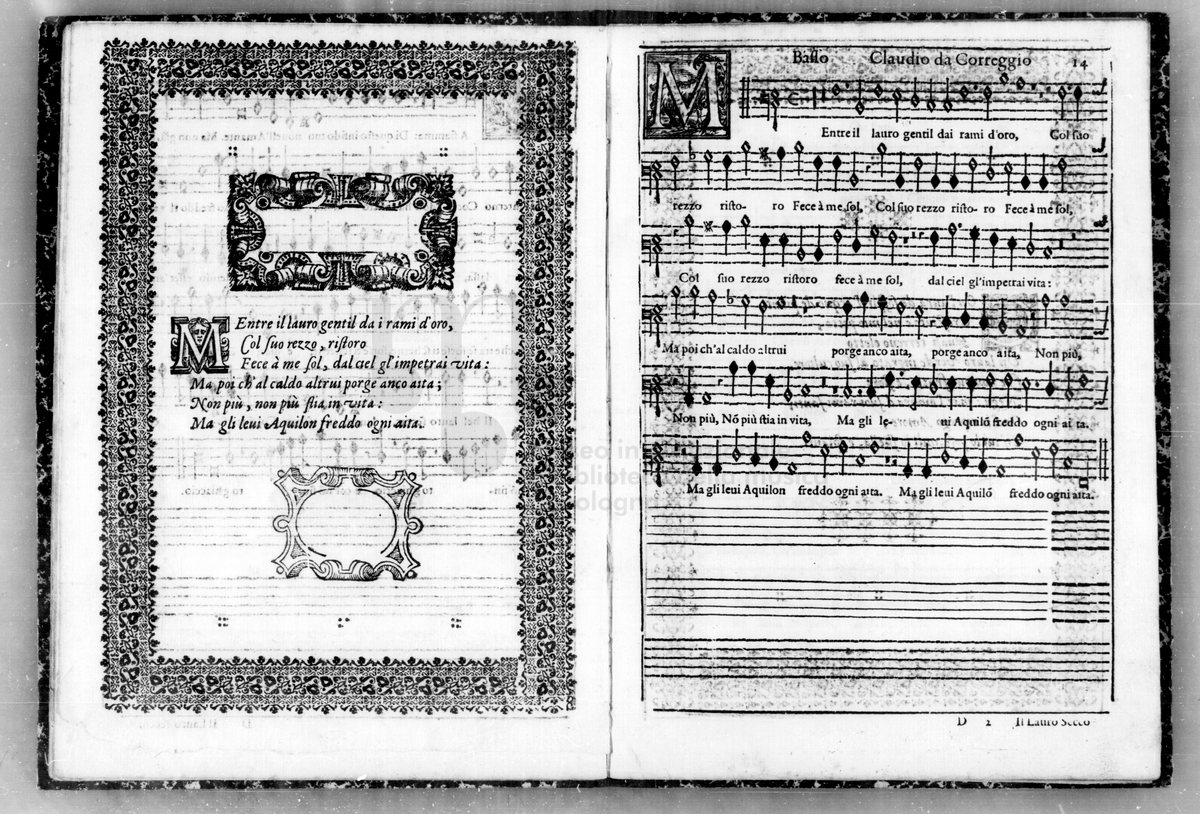 MEntre il lauro gentil da i rami d'oro,
Col suo rezzo, ristoro
Fece à me sol, dal ciel gl'impetrai vita:
Ma poi ch'al caldo altrui porge anco aita;
Non più, non più stia in vita:
Ma gli leui Aquilon freddo ogni aita.
Basso Claudio da Correggio 14
M
Entre il lauro gentil dai rami d'oro, Col suo
rezzo risto- ro Fece à me sol, Col suo rezzo risto- ro Fece à me sol,
Col suo rezzo ristoro fece à me sol, dal ciel gl'impetrai vita:
Ma poi ch'al caldo altrui porge anco aita, porge anco aita, Non più,
Non più, Nō più stia in vita, Ma gli le- ui Aquilō freddo ogni ai ta.
Ma gli leui Aquilon freddo ogni aita. Ma gli leui Aquilō freddo ogni aita.
D 2 Il Lauro Secco